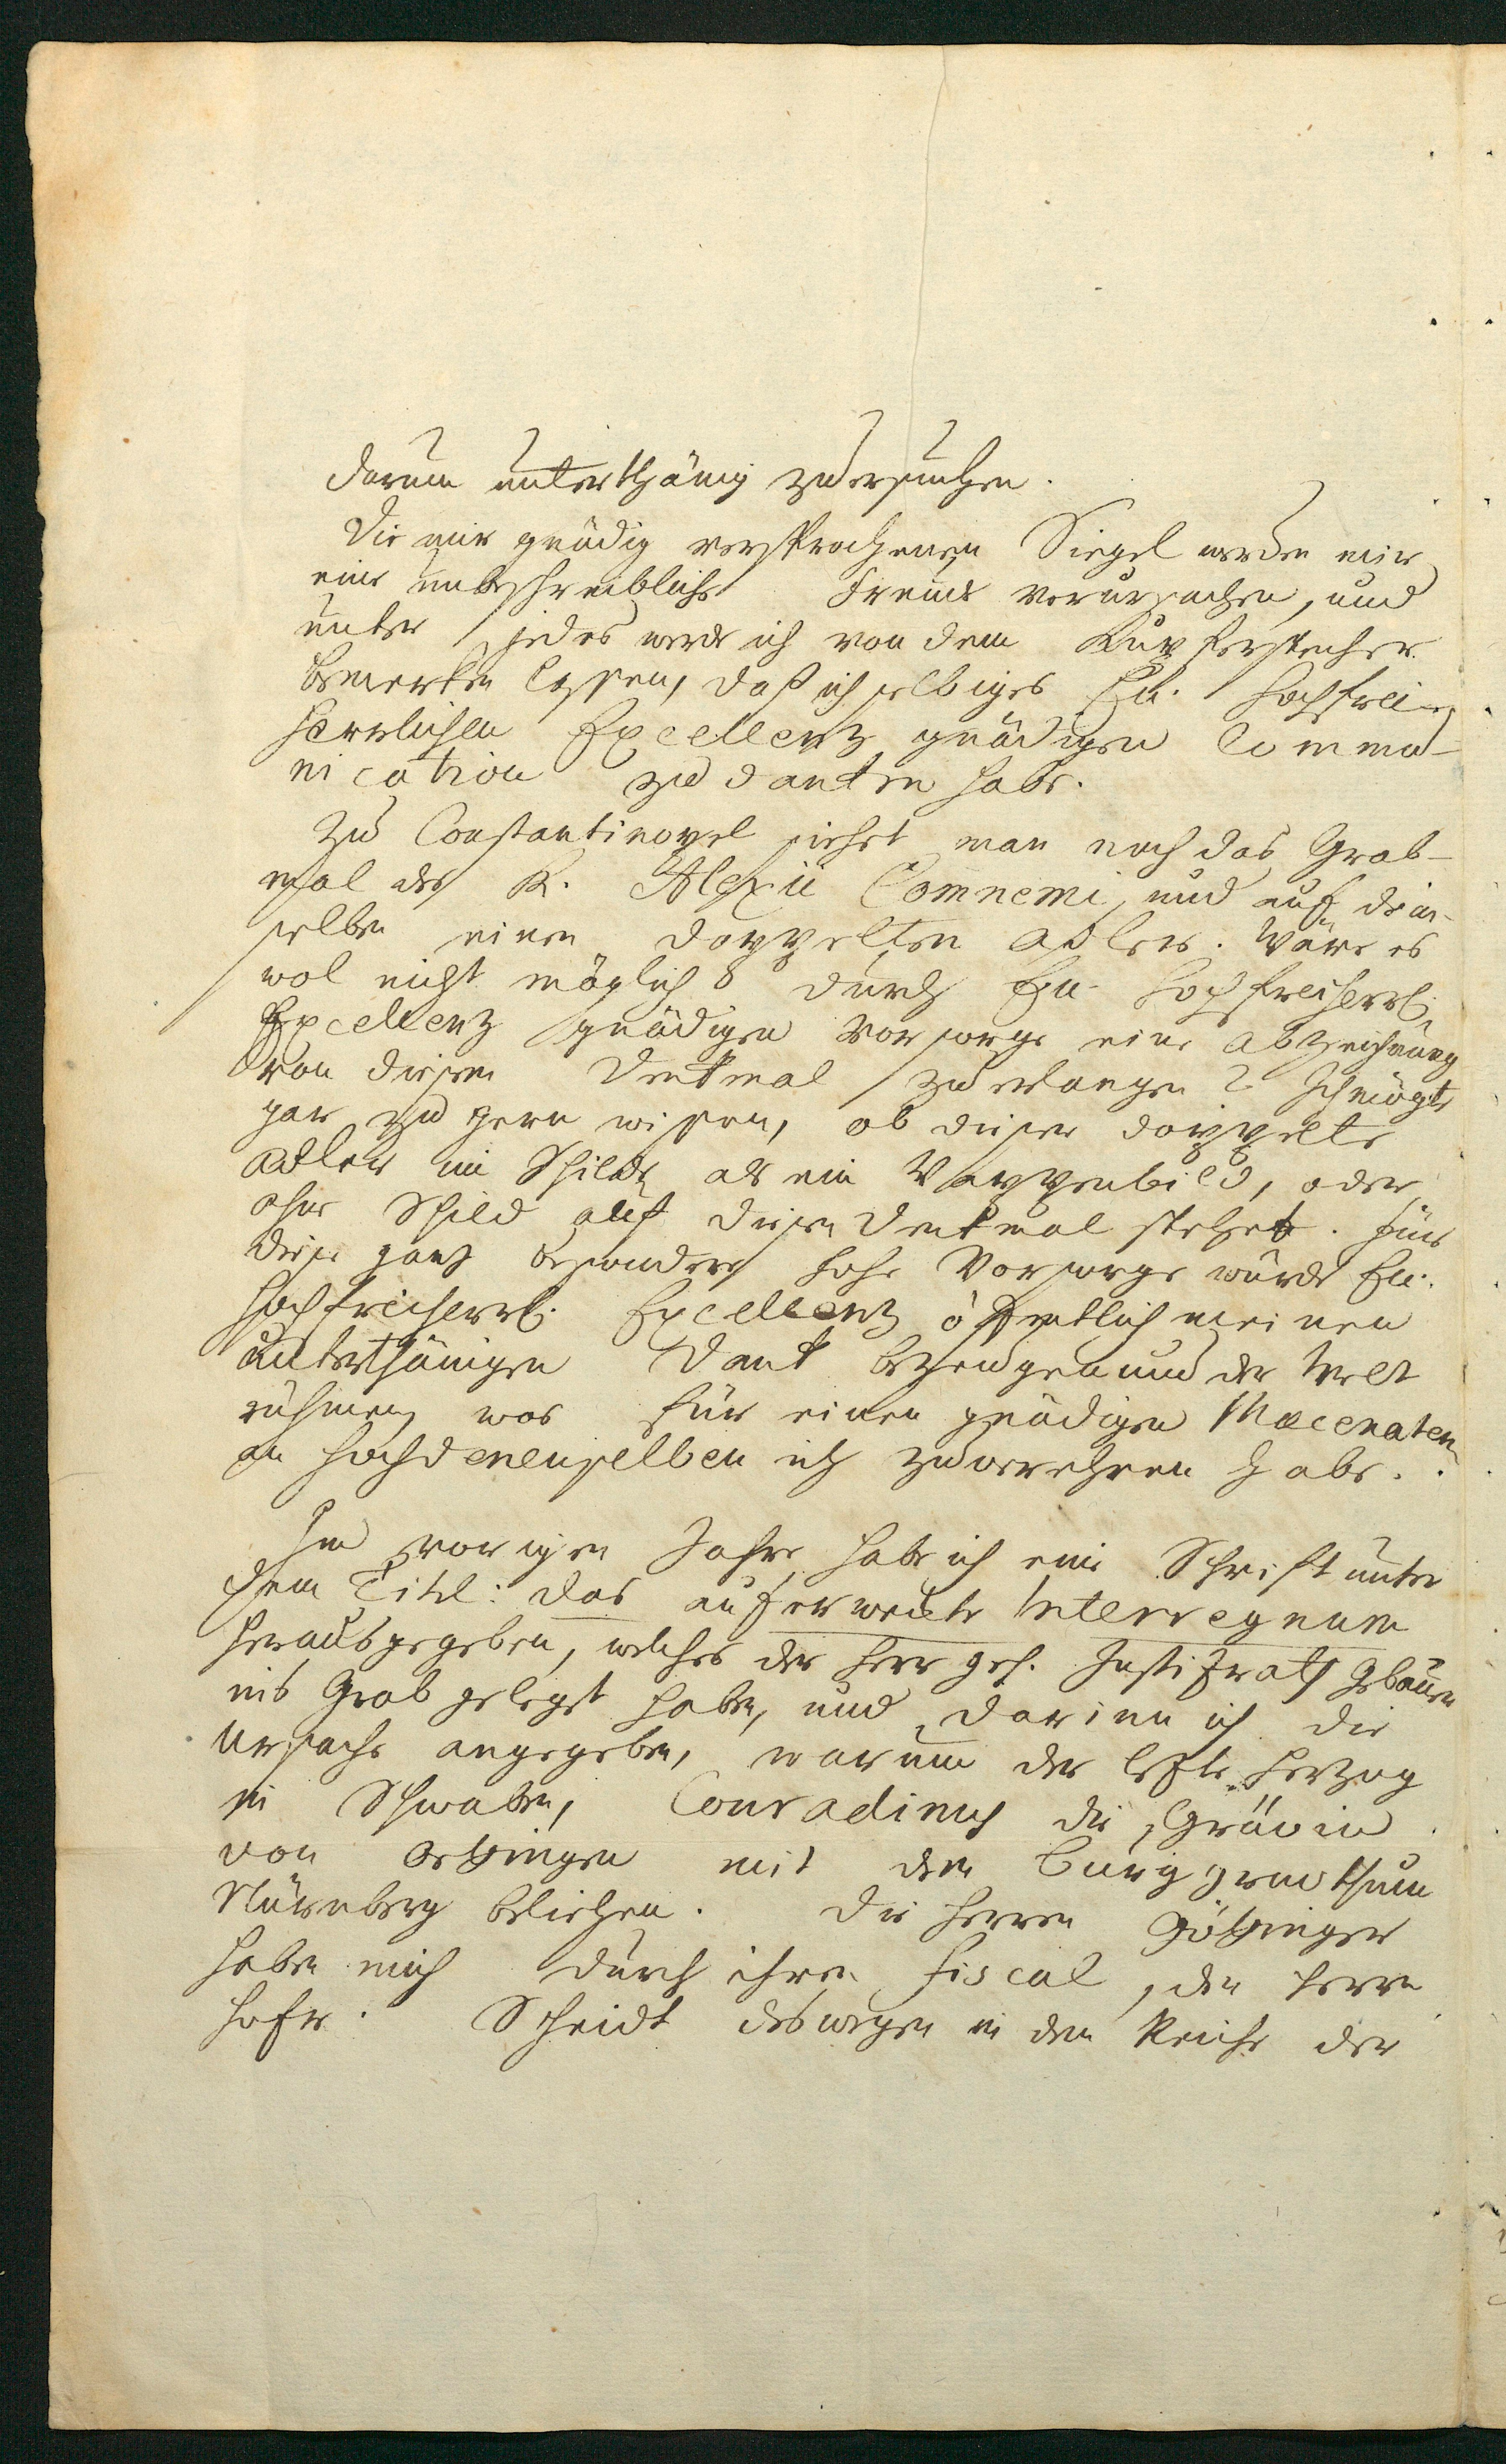 darum unterthänig zu ersuchen.
Die mir gnädig versprochenen Siegel werden mir
eine unbeschreibliche Freude verursachen, und
unter jedes werde ich von dem Kupferstecher
bemerken lassen, daß ich selbiges Eu. Hochfrei-
herrlichen Excellenz gnädigen Commu-
nication zu danken habe.
Zu Constantinopel siehet man noch das Grab-
mal des K. Alexii Comneni, und auf dem-
selben einen doppelten Adler. Wäre es
wol nicht möglich durch Eu. Hochfreiherrl.
Excellenz gnädigen Vorsorge eine Abzeichnung
von diesem Denkmal zu erlangen? Ich mögte
gar zu gern wissen, ob dieser doppelte
Adler im Schilde als ein Wappenbild, oder
ohne Schild auf diesem Denkmal stehet. Für
diese ganz besondere hohe Vorsorge würde Eu.
Hochfreiherrl. Excellenz öffentlich meinen
unterthänigen Dank bezeugen und der Welt
rühmen, was für einen gnädigen Macenaten
an Hochdenenselben ich zu verehren habe.
Im vorigen Jahre habe ich eine Schrift unter
dem Titel: das auferweckte Interregnum
herausgegeben, welches der Herr geh. Justizrath Gebauer
ins Grab gelegt haben, und darinn ich die
Ursache angegeben, warum der lezte Herzog
in Schwaben, Conradinus die Grävin
von Oettingen mit dem Burggravthum
Nürnberg beliehen. Die Herren Göttinger
haben mich durch ihren Fiscal, den Herrn
Hofr. Scheidt deswegen in dem Reiche der